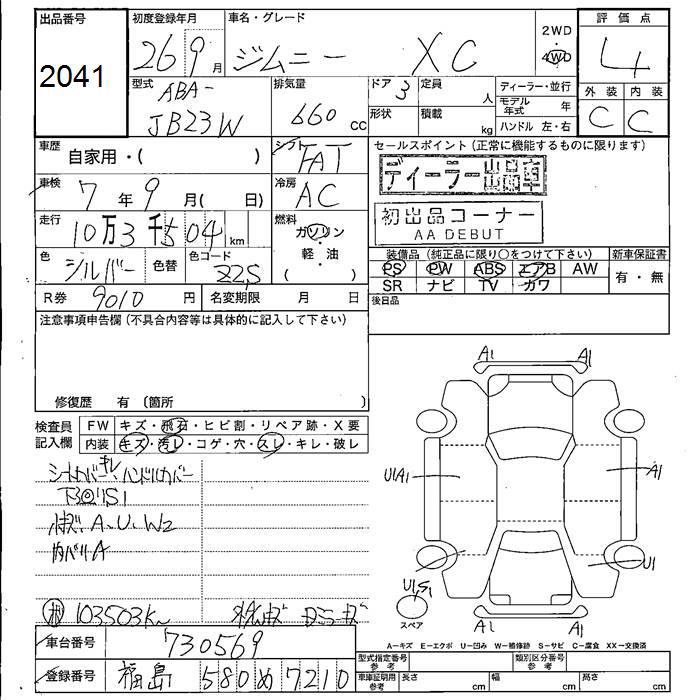 出品番号 初度登録年月 車名・グレード 2WD 評価点
2041 26 9月 ジムニー XC 4WD 4
型式 排気量 ドア 定員 ディーラー・並行 外装 内装
ABA- 3 人 モデル年式 年 C C
JB23W 660 cc 形状 積載 kg ハンドル 左・右
車歴 自家用・( ) シフト FAT セールスポイント(正常に機能するものに限ります)
車検 7年9月( 日) 冷房 AC ディーラー出品車
走行 10万3千504 km 燃料 ガソリン・軽・油 ( ) 初出品コーナー
AA DEBUT
色 シルバー 色替 色コード Z2S 装備品(純正品に限り○をつけて下さい) 新車保証書
PS PW ABS エアB AW 有・無
SR ナビ TV カワ
R券 9010円 名変期限 月 日 後日品
注意事項申告欄(不具合内容等は具体的に記入して下さい)
修復歴 有 (箇所 )
検査員記入欄 FW キズ・飛石・ヒビ割・リペア跡・X要
内装 キズ・汚レ・コゲ・穴・スレ・キレ・破レ
シートカバーキレ、ハンドルカバー
A、U、W2
A
103503K
A1 A1
U1A1 A1
U1
U1S1
スペア
A1 A1
A-キズ E-エクボ U-凹み W-補修跡 S-サビ C-腐食 XX-交換済
車台番号 730569
登録番号 福島 580 め 7210
型式指定番号 参考 類別区分番号 参考
車庫証明用 参考 長さ cm 幅 cm 高さ cm